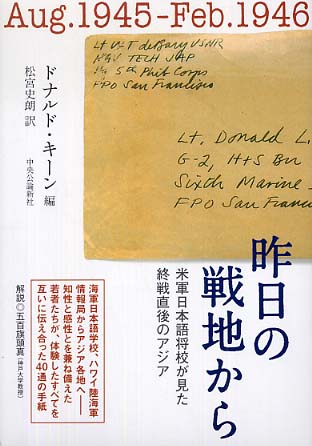 Aug.1945-Feb.1946
Lt WT deBary USNR
NAV TECH JAP
℅ 5th Phib Corps
FPO San Francisco
Lt. Donald L.
G-2, H+S Bn
Sixth Marine
FPO San Franc
ドナルド・キーン 編
松宮史朗 訳
中央公論新社
昨日の
戦地から
米軍日本語将校が見た
終戦直後のアジア
海軍日本語学校、ハワイ陸海軍
情報局からアジア各地へ――
知性と感性とを兼ね備えた
若者たちが、体験したすべてを
互いに伝え合った40通の手紙
解説◎五百旗頭真(神戸大学教授)